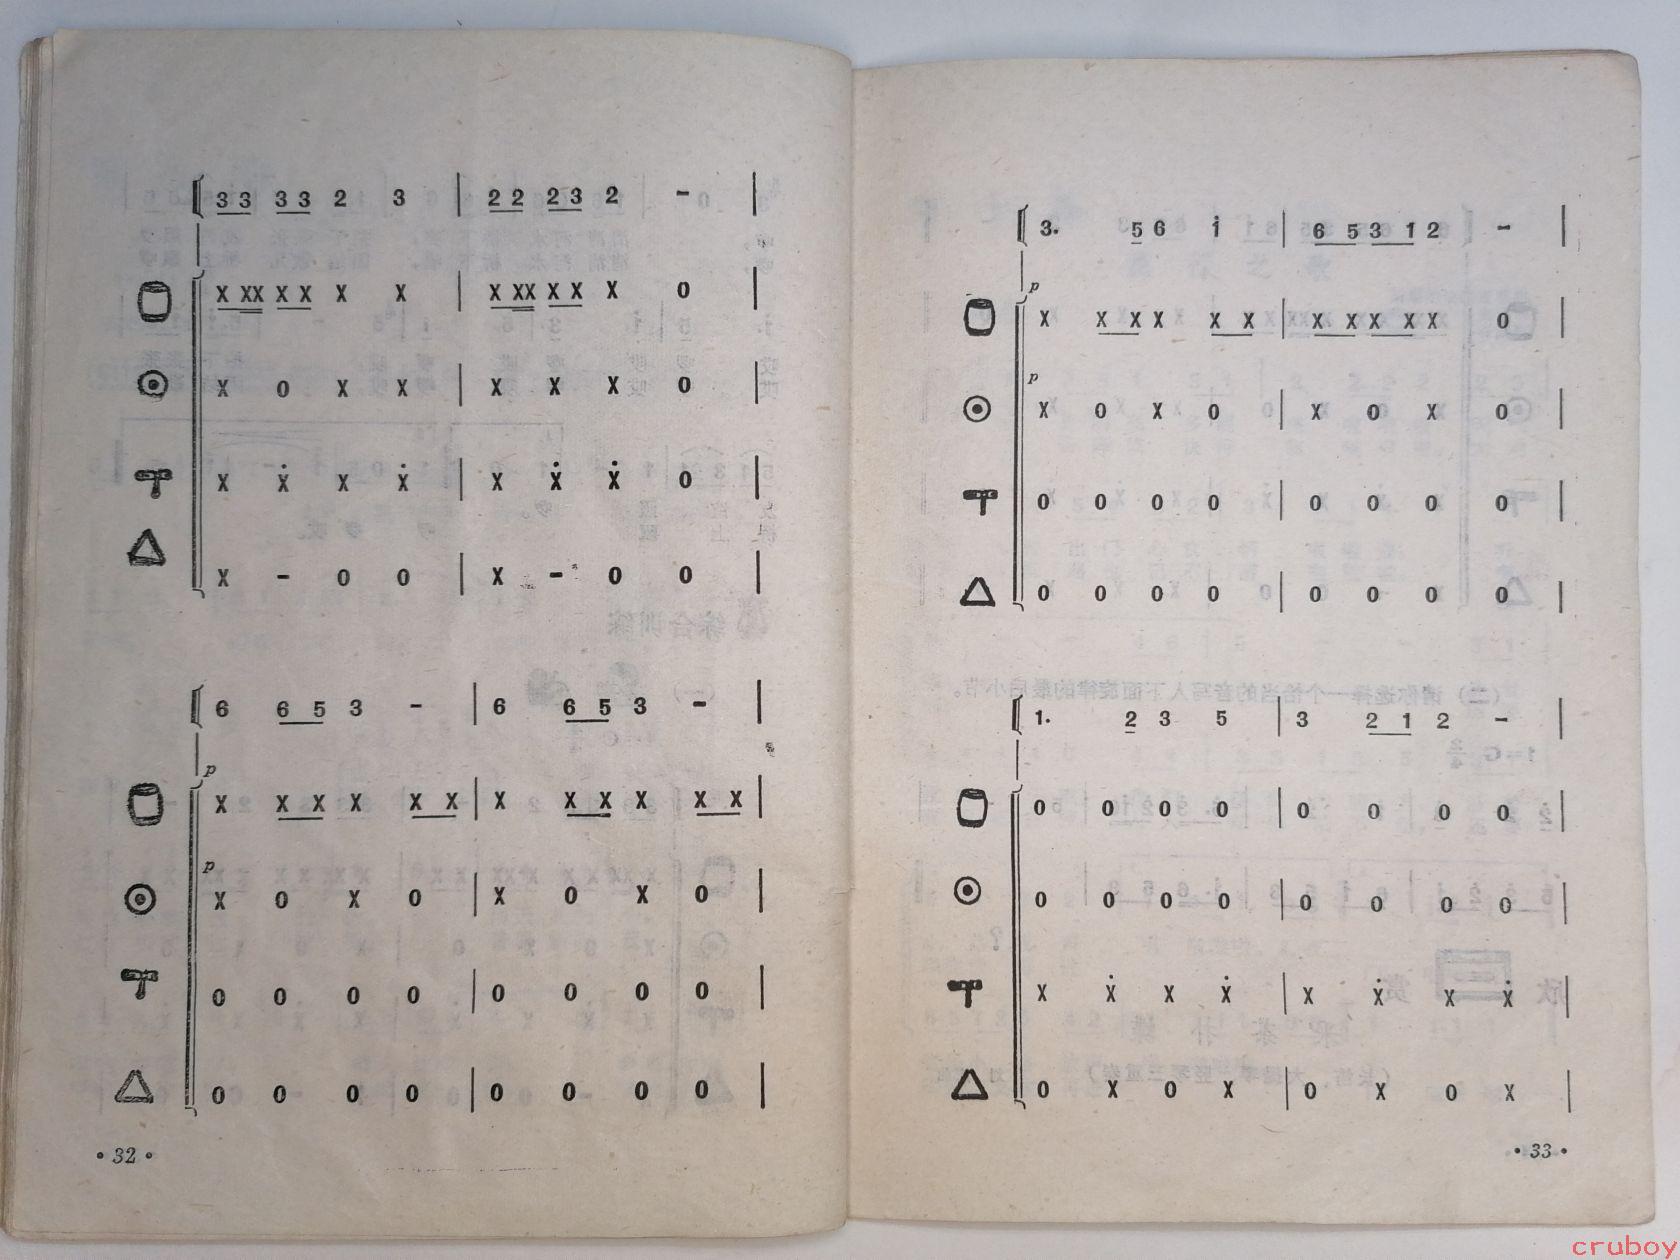 3 3 3 3 2 3 | 2 2 2 3 2 - |
X XX X X X X | X XX X X X 0 |
X 0 X X | X X X 0 |
X Ẋ X Ẋ | X Ẋ Ẋ 0 |
X - 0 0 | X - 0 0 |
6 6 5 3 - | 6 6 5 3 - |
p
X X X X X X | X X X X X X |
p
X 0 X 0 | X 0 X 0 |
0 0 0 0 | 0 0 0 0 |
0 0 0 0 | 0 0 0 0 |
• 32 •
3. 5 6 i | 6 5 3 1 2 - |
p
X X X X X X | X X X X X 0 |
p
X 0 X 0 | X 0 X 0 |
0 0 0 0 | 0 0 0 0 |
0 0 0 0 | 0 0 0 0 |
1. 2 3 5 | 3 2 1 2 - |
0 0 0 0 | 0 0 0 0 |
0 0 0 0 | 0 0 0 0 |
X Ẋ X Ẋ | X Ẋ X Ẋ |
0 X 0 X | 0 X 0 X |
• 33 •
cruboy